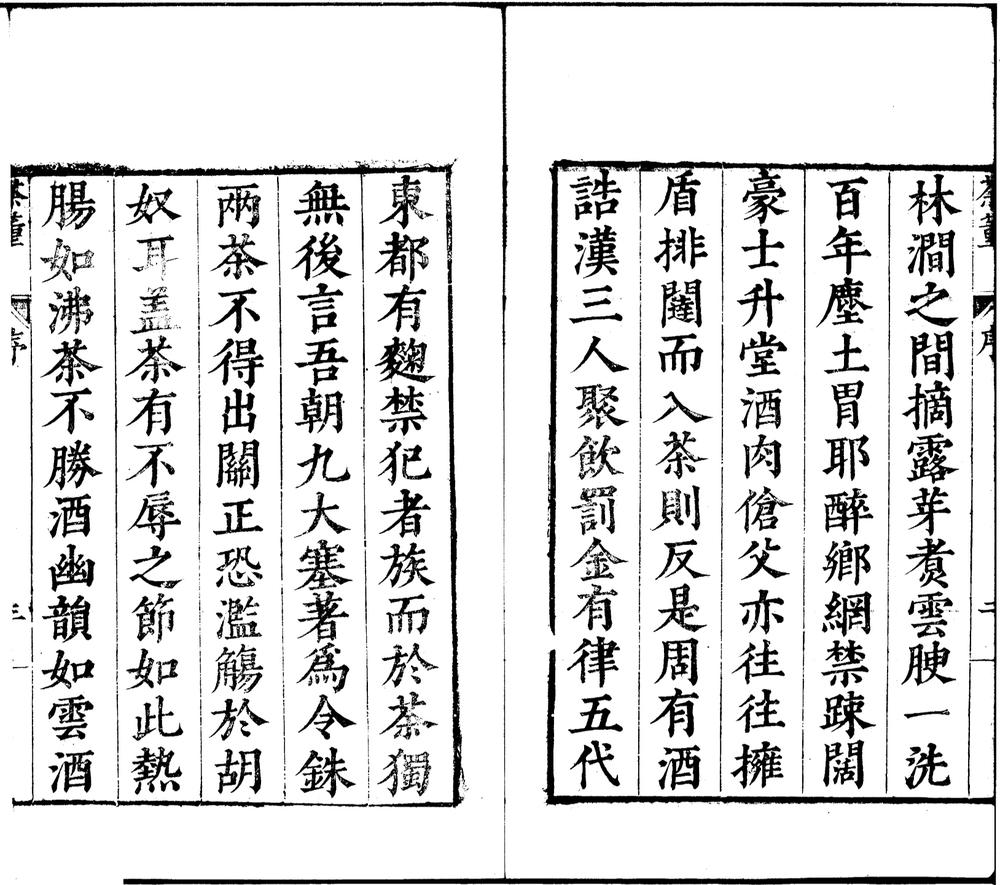 茶董
序
二
林澗之間摘露芽煑雲腴一洗
百年塵土胃耶醉鄉網禁踈闊
豪士升堂酒肉傖父亦往往擁
盾排闥而入茶則反是周有酒
誥漢三人聚飲罰金有律五代
東都有麴禁犯者族而於茶獨
無後言吾朝九大塞著爲令銖
兩茶不得出關正恐濫觴於胡
奴耳盖茶有不辱之節如此熱
腸如沸茶不勝酒幽韻如雲酒
茶董
序
三